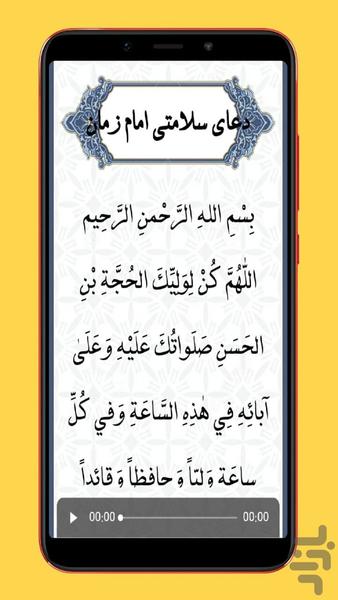 دعای سلامتی امام زمان
بِسْمِ اللهِ الرَّحْمنِ الرَّحِیم
اللّٰهُمَّ كُنْ لِوَلِيِّكَ الحُجَّةِ بْنِ
الحَسَنِ صَلَواتُكَ عَلَيْهِ وَعَلَىٰ
آبائِهِ فِي هٰذِهِ السَّاعَةِ وَفي كُلِّ
ساعَة وَليّاً وَ حافظاً وَ قائداً
00:00 00:00
بازار